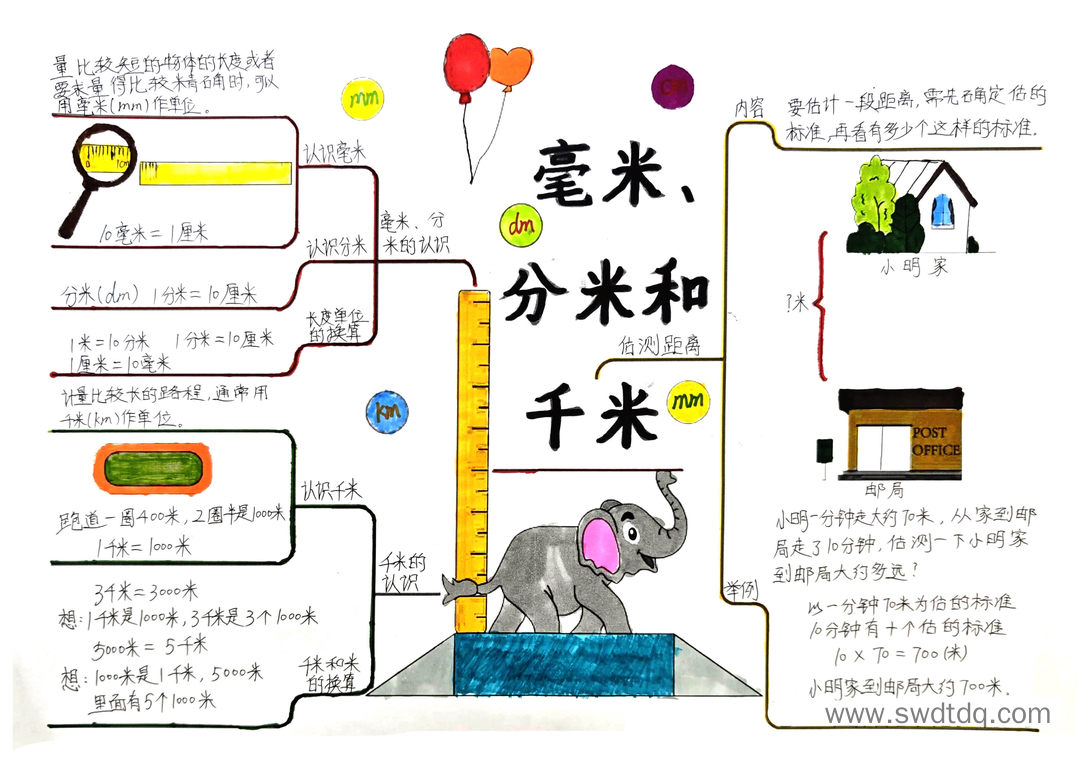 毫米、
分米和
千米
mm
cm
dm
mm
km
毫米、分
米的认识
认识毫米
量比较短的物体的长度或者
要求量得比较精确时,可以
用毫米(mm)作单位。
0 1cm
10毫米=1厘米
认识分米
分米(dm) 1分米=10厘米
长度单位
的换算
1米=10分米 1分米=10厘米
1厘米=10毫米
千米的
认识
认识千米
计量比较长的路程,通常用
千米(km)作单位。
跑道一圈400米,2圈半是1000米
1千米=1000米
千米和米
的换算
3千米=3000米
想:1千米是1000米,3千米是3个1000米
5000米=5千米
想:1000米是1千米,5000米
里面有5个1000米
估测距离
内容
要估计一段距离,需先确定估的
标准,再看有多少个这样的标准.
小明家
?米
POST
OFFICE
邮局
举例
小明一分钟走大约70米,从家到邮
局走了10分钟,估测一下小明家
到邮局大约多远?
以一分钟70米为估的标准
10分钟有十个估的标准
10×70=700(米)
小明家到邮局大约700米.
www.swdtdq.com